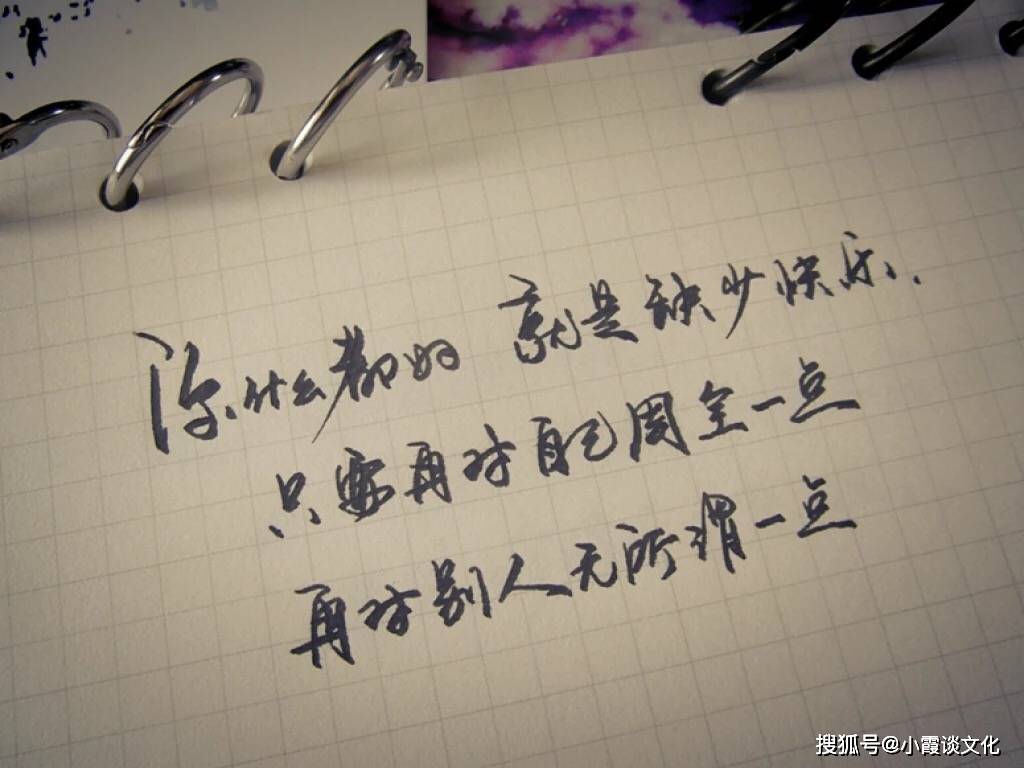 你什么都好 就是缺少快乐.
只要再对自己周全一点
再对别人无所谓一点
搜狐号@小霞谈文化